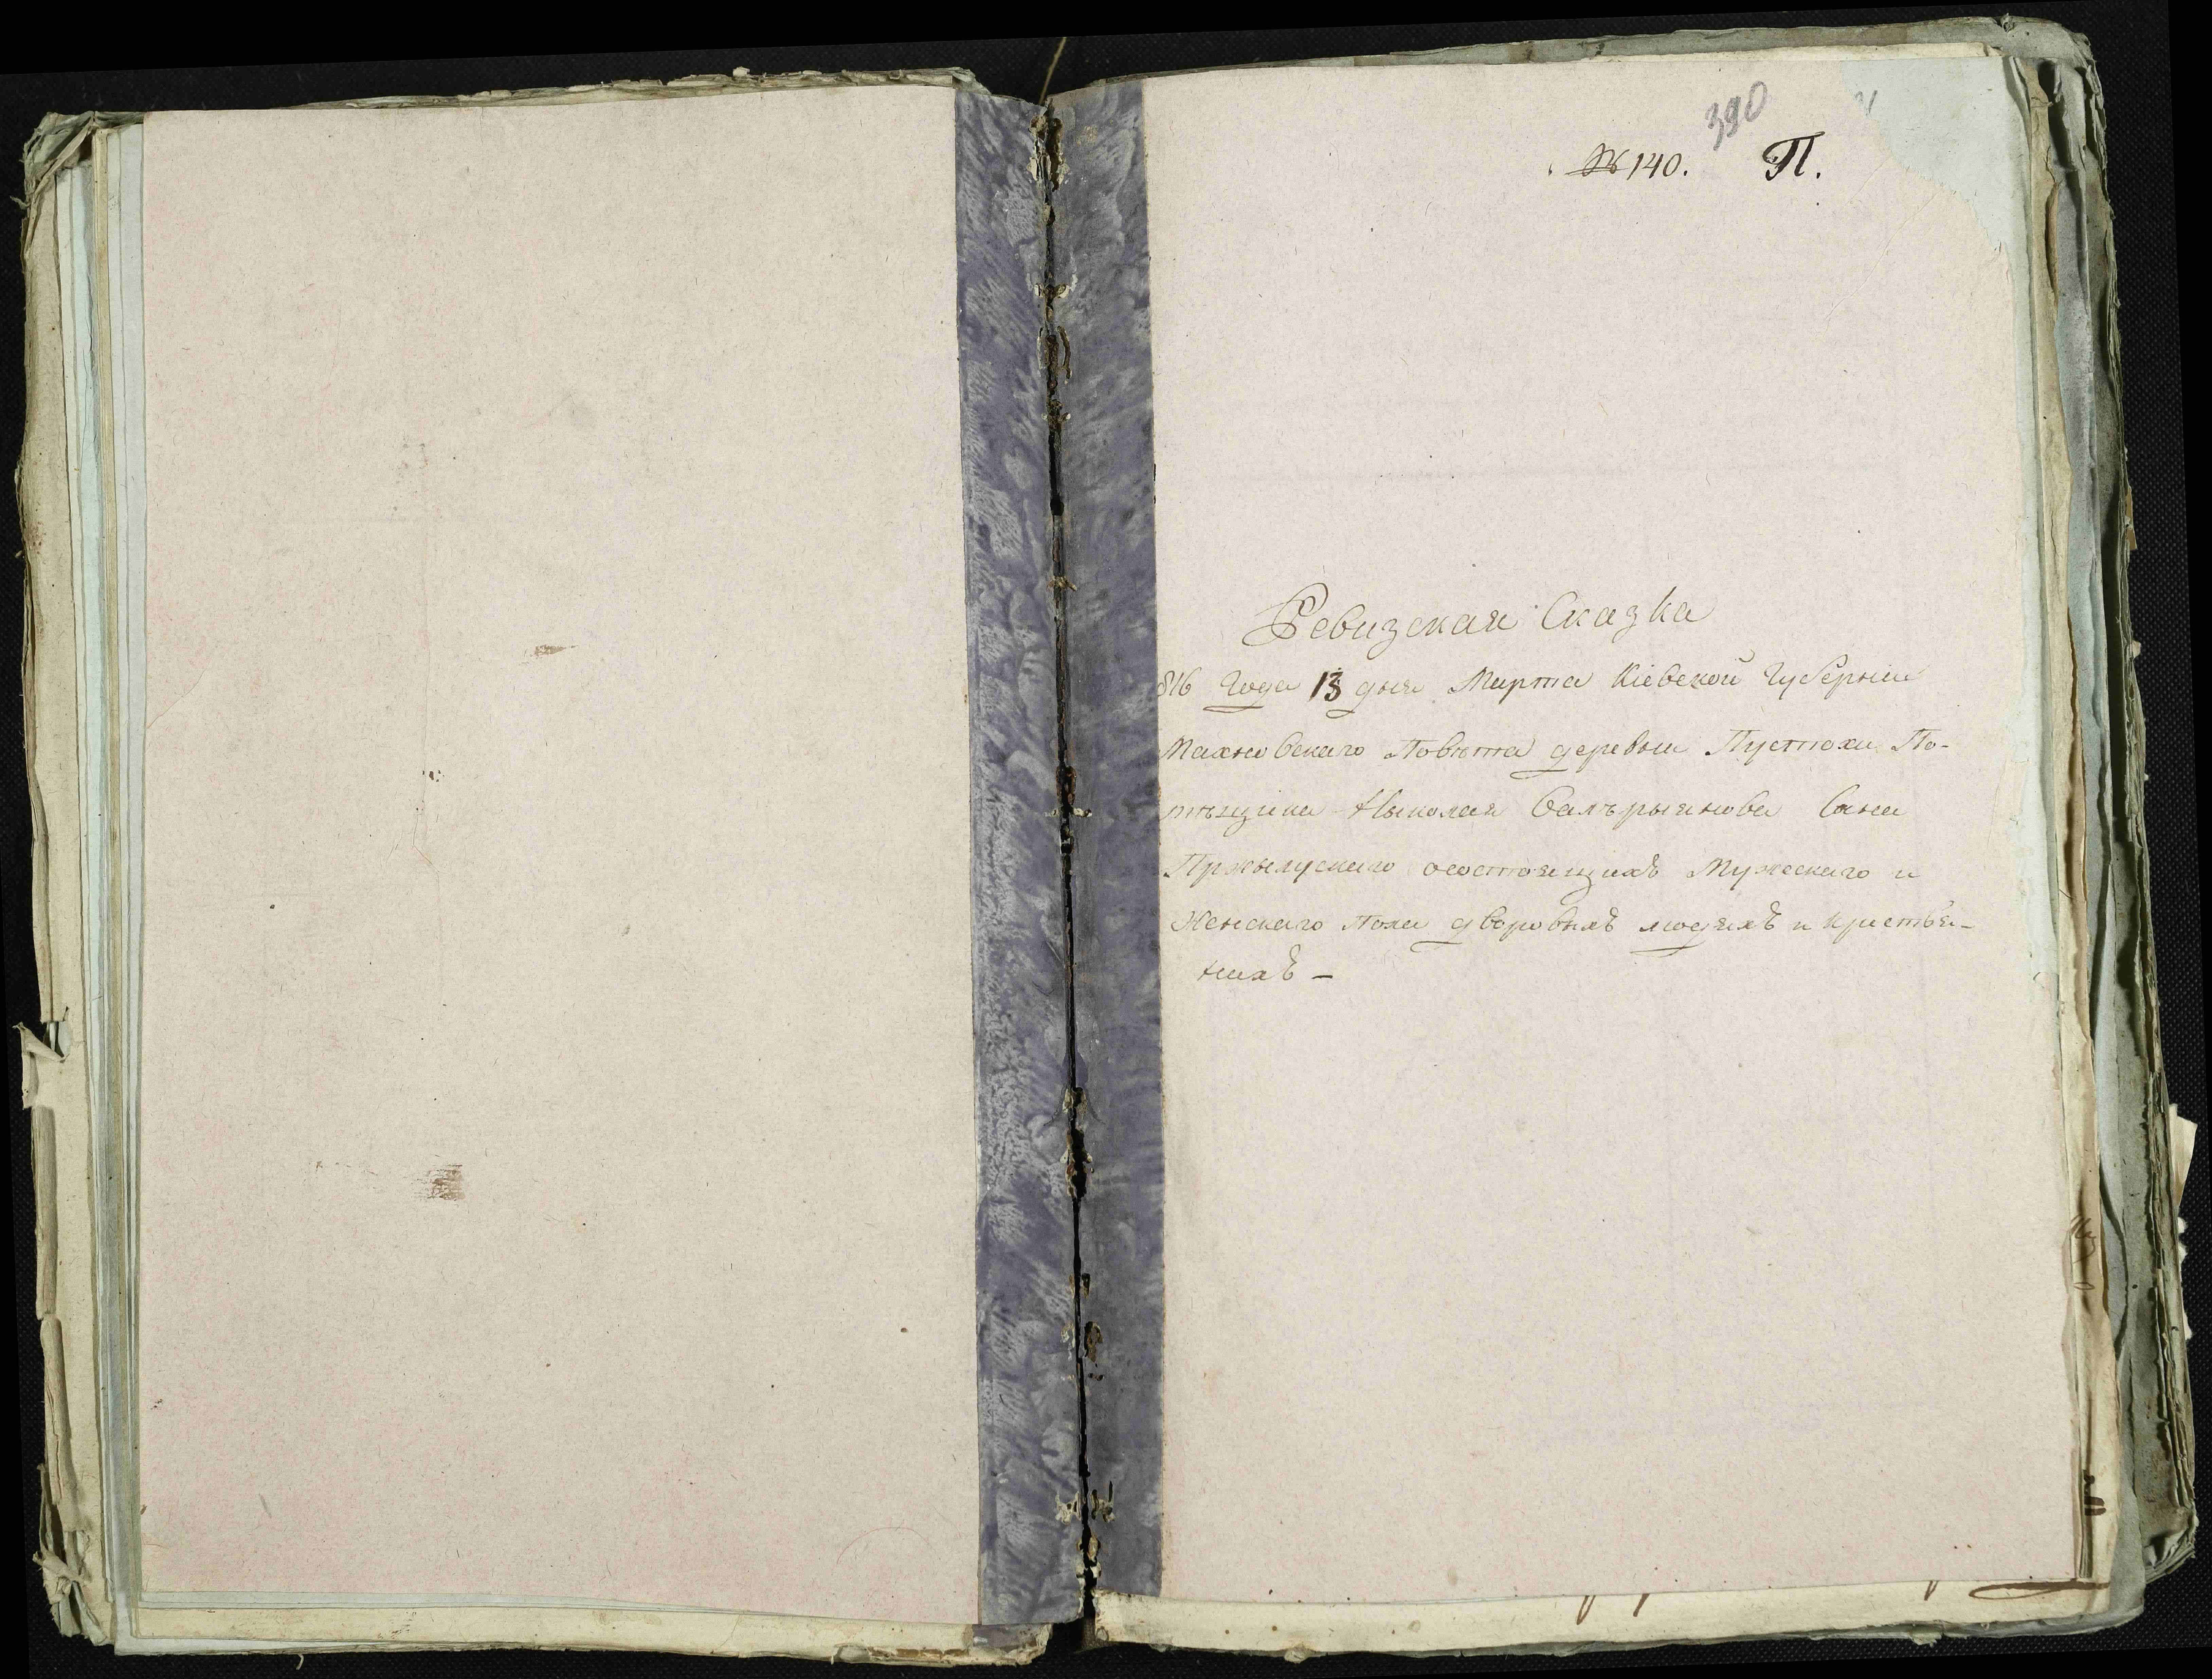 390
№ 140. П.
Ревизская Сказка
816 Года 13 дня Марта Кіевской Губерніи
Махновскаго Повѣта деревни Пустохи По-
мѣщика Николая Валърыянова Сына
Пржылускаго осостоящихъ Мужескаго и
Женскаго Пола дворовыхъ людяхъ и кристья-
нихъ -